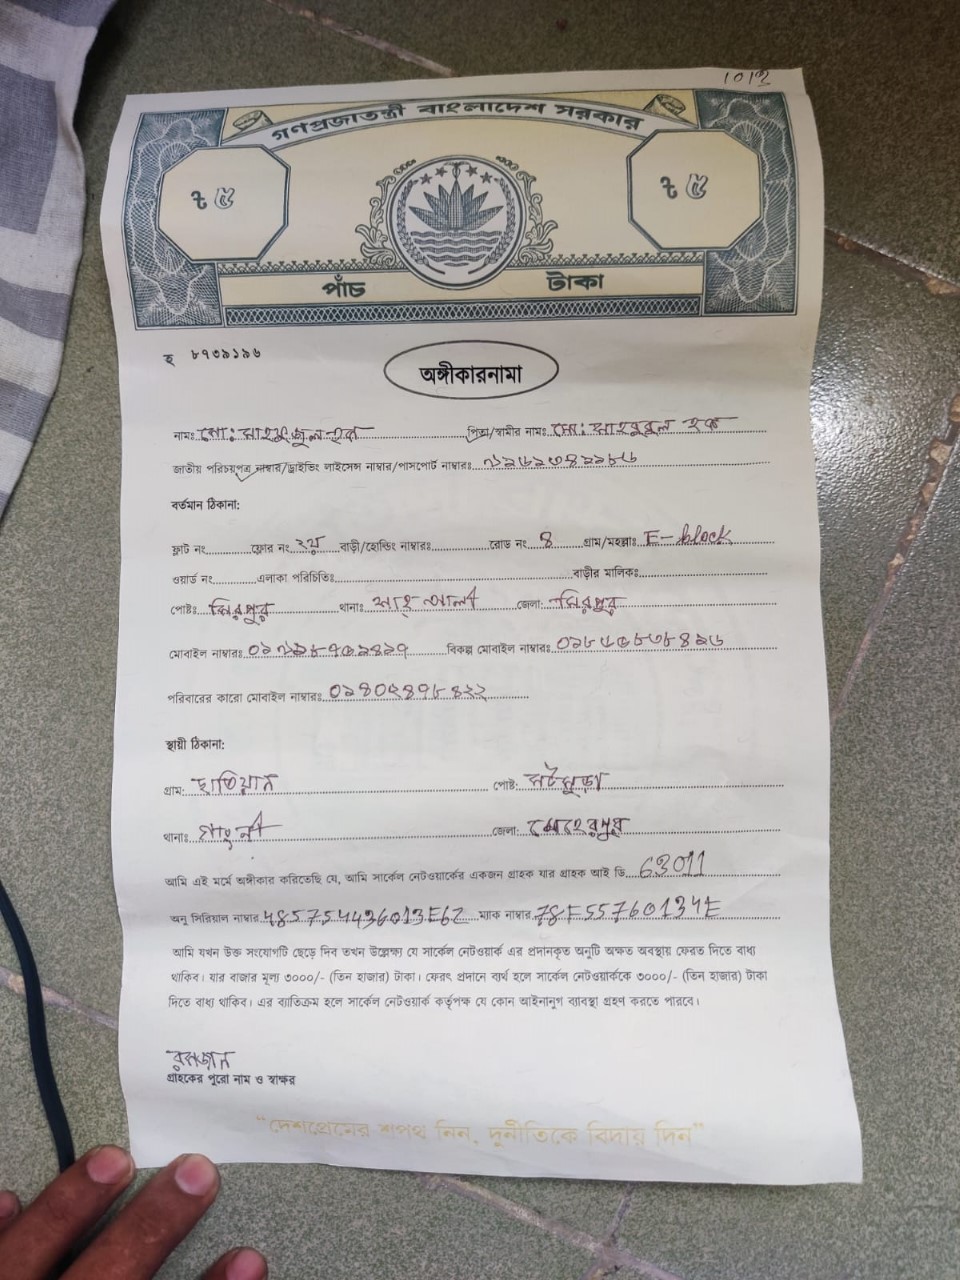 1013
গণপ্রজাতন্ত্রী বাংলাদেশ সরকার
৳ ৫ ৳ ৫
পাঁচ টাকা
হ ৮৭৩৯১৯৬
অঙ্গীকারনামা
নামঃ মো: পিতা/স্বামীর নামঃ মো: হক
জাতীয় পরিচয়পত্র নাম্বার/ড্রাইভিং লাইসেন্স নাম্বার/পাসপোর্ট নাম্বারঃ
বর্তমান ঠিকানা:
ফ্লাট নং ফ্লোর নং ২য় বাড়ী/হোল্ডিং নাম্বারঃ রোড নং ৪ গ্রাম/মহল্লাঃ E-block
ওয়ার্ড নং এলাকা পরিচিতিঃ বাড়ীর মালিকঃ
পোষ্টঃ মিরপুর থানাঃ শাহ্ আলী জেলা: মিরপুর
মোবাইল নাম্বারঃ বিকল্প মোবাইল নাম্বারঃ
পরিবারের কারো মোবাইল নাম্বারঃ
স্থায়ী ঠিকানা:
গ্রাম: ছাতিয়ান পোষ্ট:
থানাঃ গাংনী জেলা: মেহেরপুর
আমি এই মর্মে অঙ্গীকার করিতেছি যে, আমি সার্কেল নেটওয়ার্কের একজন গ্রাহক যার গ্রাহক আই ডি 63011
অনু সিরিয়াল নাম্বার 485754436013E62 ম্যাক নাম্বার 78F55760134E
আমি যখন উক্ত সংযোগটি ছেড়ে দিব তখন উল্লেক্ষ্য যে সার্কেল নেটওয়ার্ক এর প্রদানকৃত অনুটি অক্ষত অবস্থায় ফেরত দিতে বাধ্য
থাকিব। যার বাজার মূল্য ৩০০০/- (তিন হাজার) টাকা। ফেরৎ প্রদানে ব্যর্থ হলে সার্কেল নেটওয়ার্ককে ৩০০০/- (তিন হাজার) টাকা
দিতে বাধ্য থাকিব। এর ব্যাতিক্রম হলে সার্কেল নেটওয়ার্ক কর্তৃপক্ষ যে কোন আইনানুগ ব্যাবস্থা গ্রহণ করতে পারবে।
রমজান
গ্রাহকের পুরো নাম ও স্বাক্ষর
"দেশপ্রেমের শপথ নিন, দুর্নীতিকে বিদায় দিন"